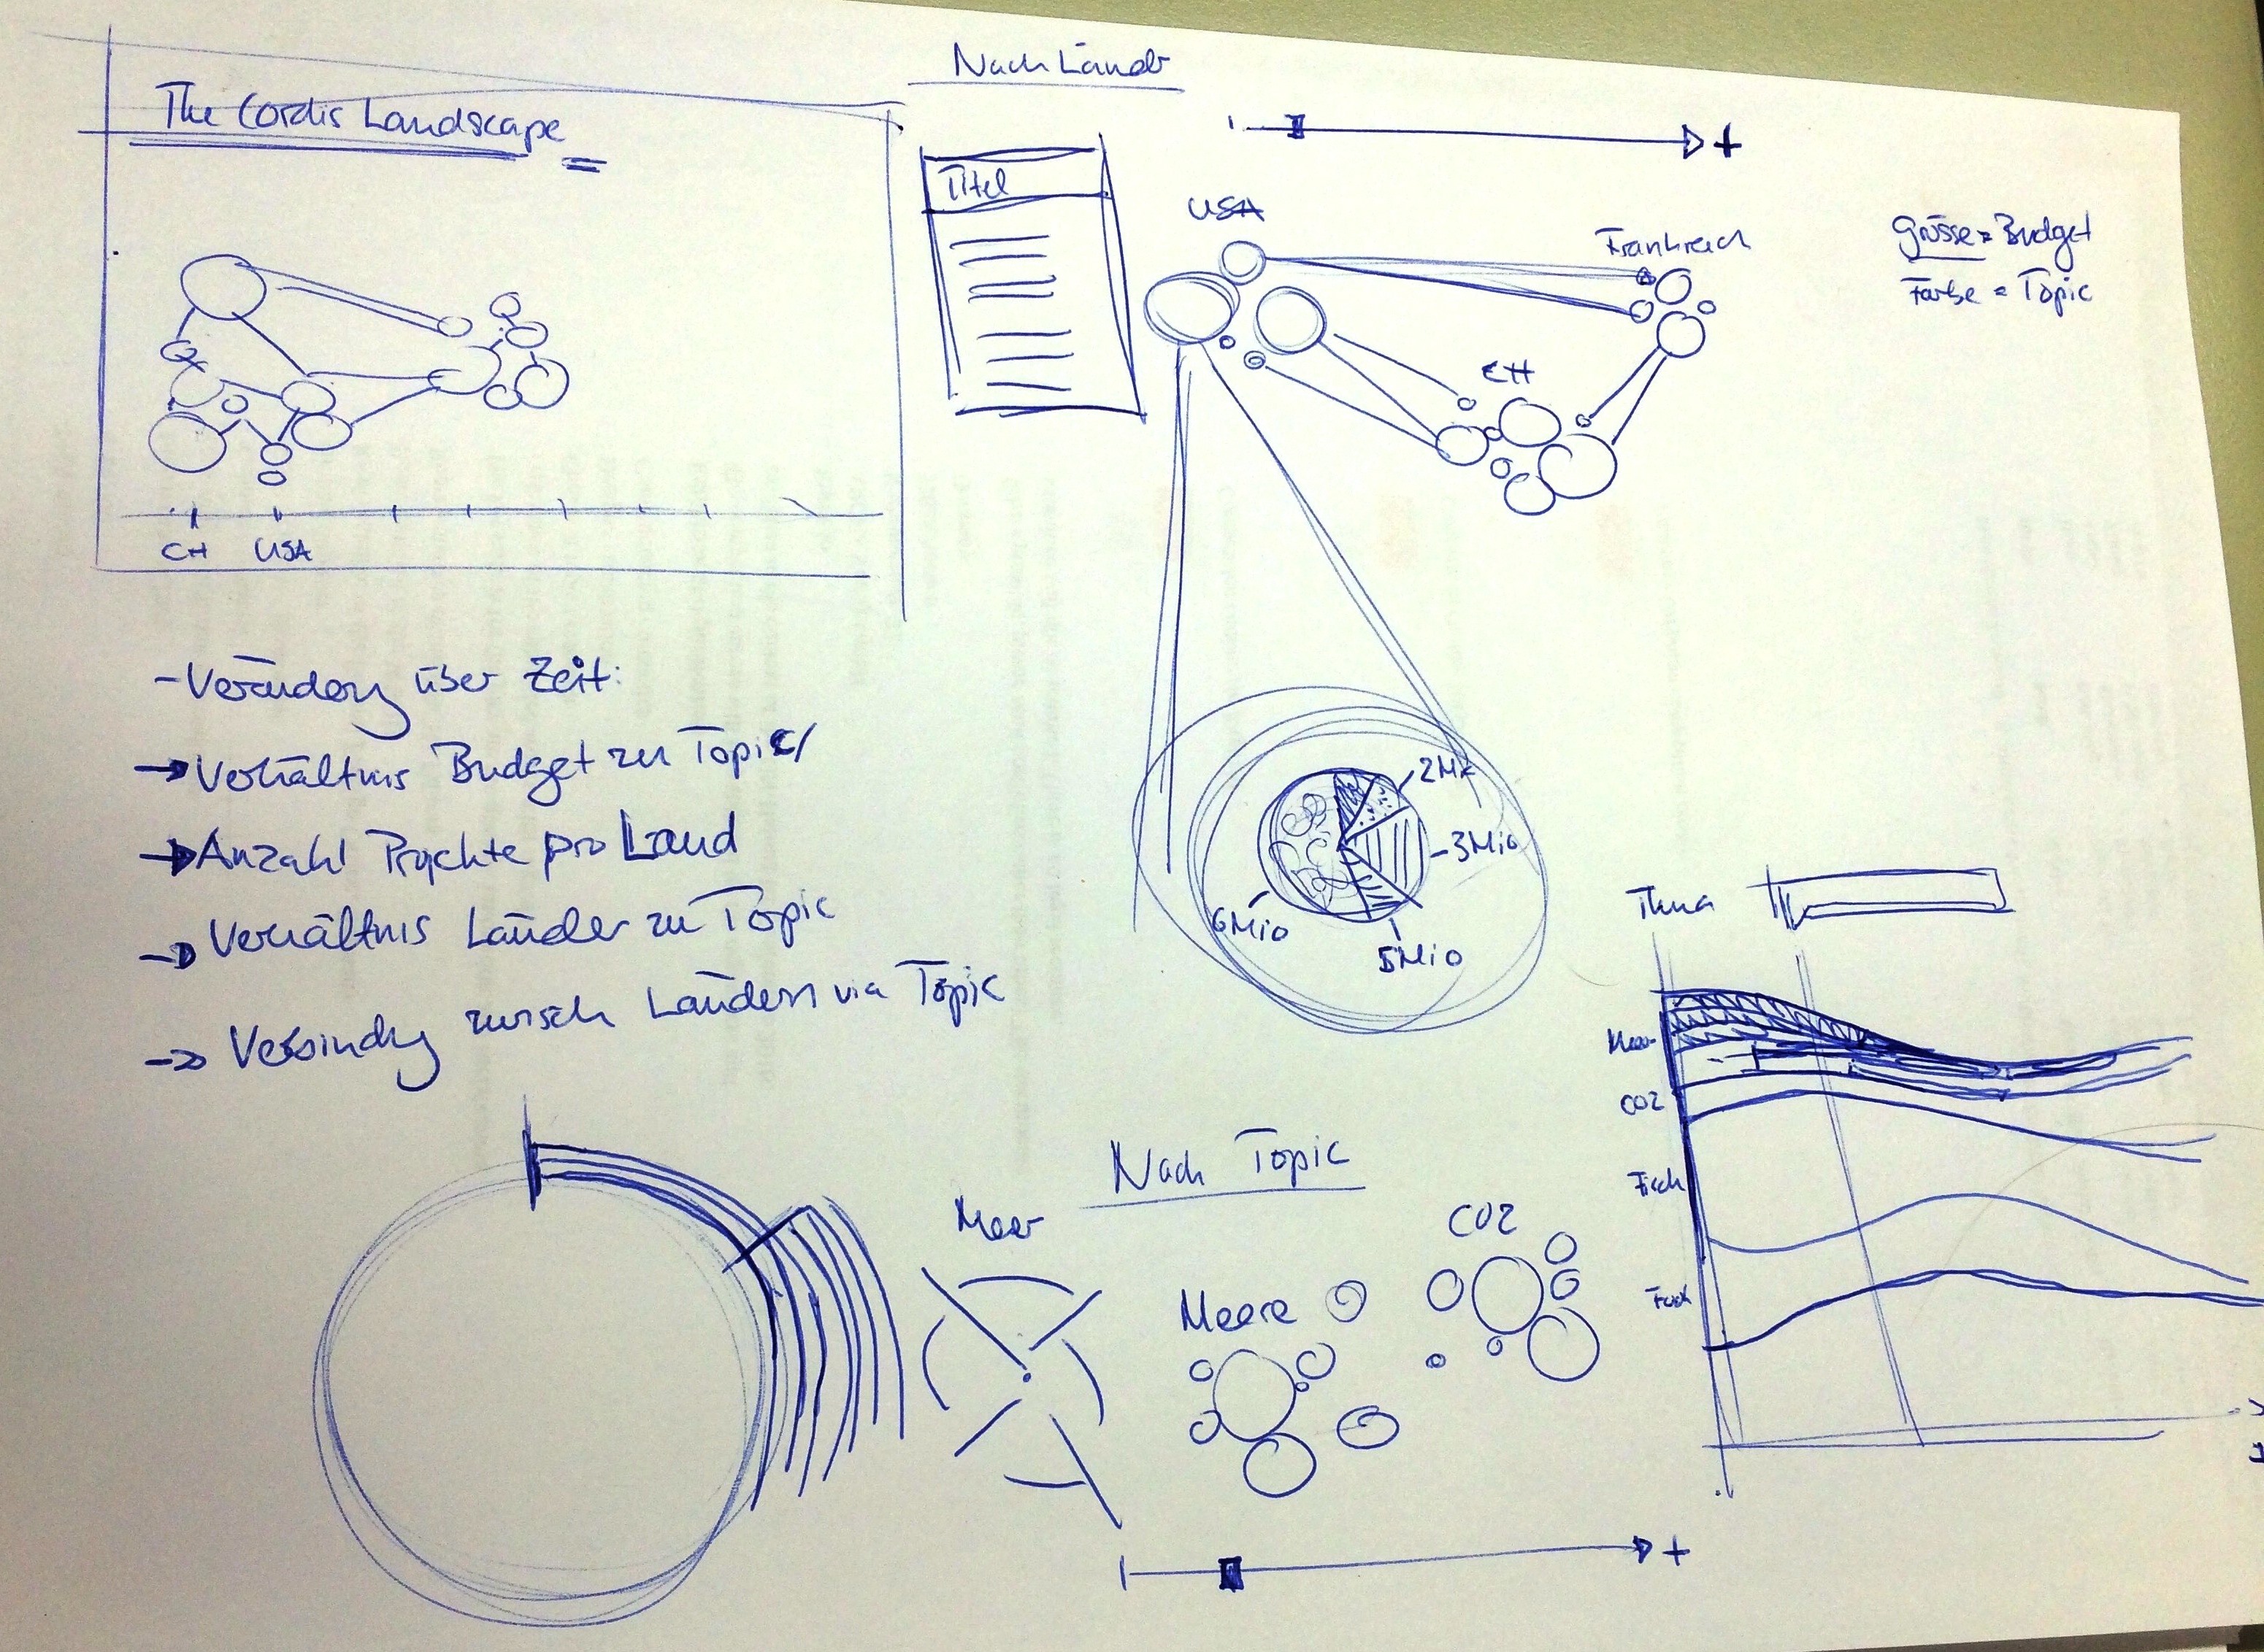 The Cordis Landscape
CH USA
Nach Länder
+
Titel
USA
Frankreich
CH
Grösse = Budget
Farbe = Topic
2M
3Mio
5Mio
6Mio
- Veränderung über Zeit:
→ Verhältnis Budget zu Topic/
→ Anzahl Projekte pro Land
→ Verhältnis Länder zu Topic
→ Verbindung zwisch Ländern via Topic
Thema
Meer
CO2
Fisch
Nach Topic
Meer
Meere
CO2
+